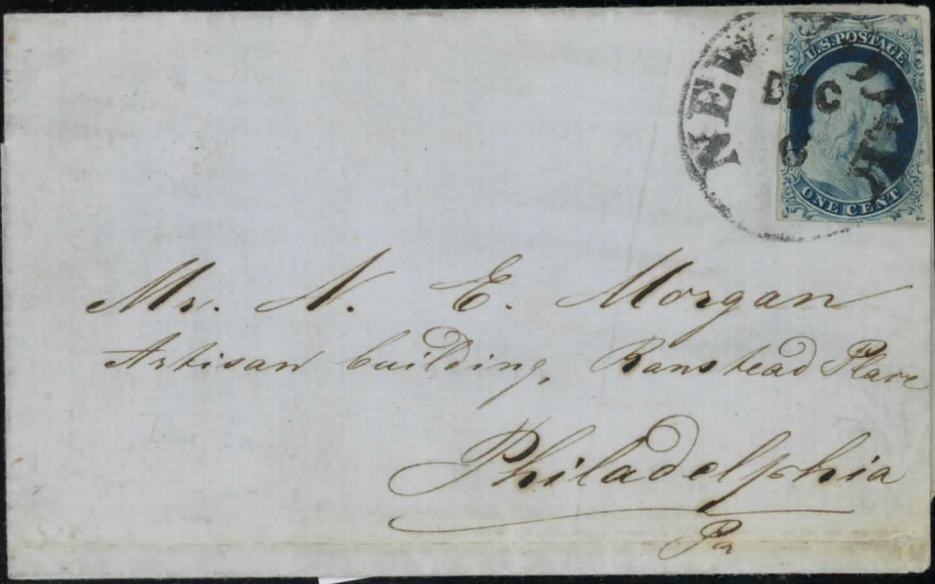 NEW YORK
DEC
6
U.S. POSTAGE
ONE CENT
Mr. N. E. Morgan
Artisan building, Ranstead Place
Philadelphia
Pa